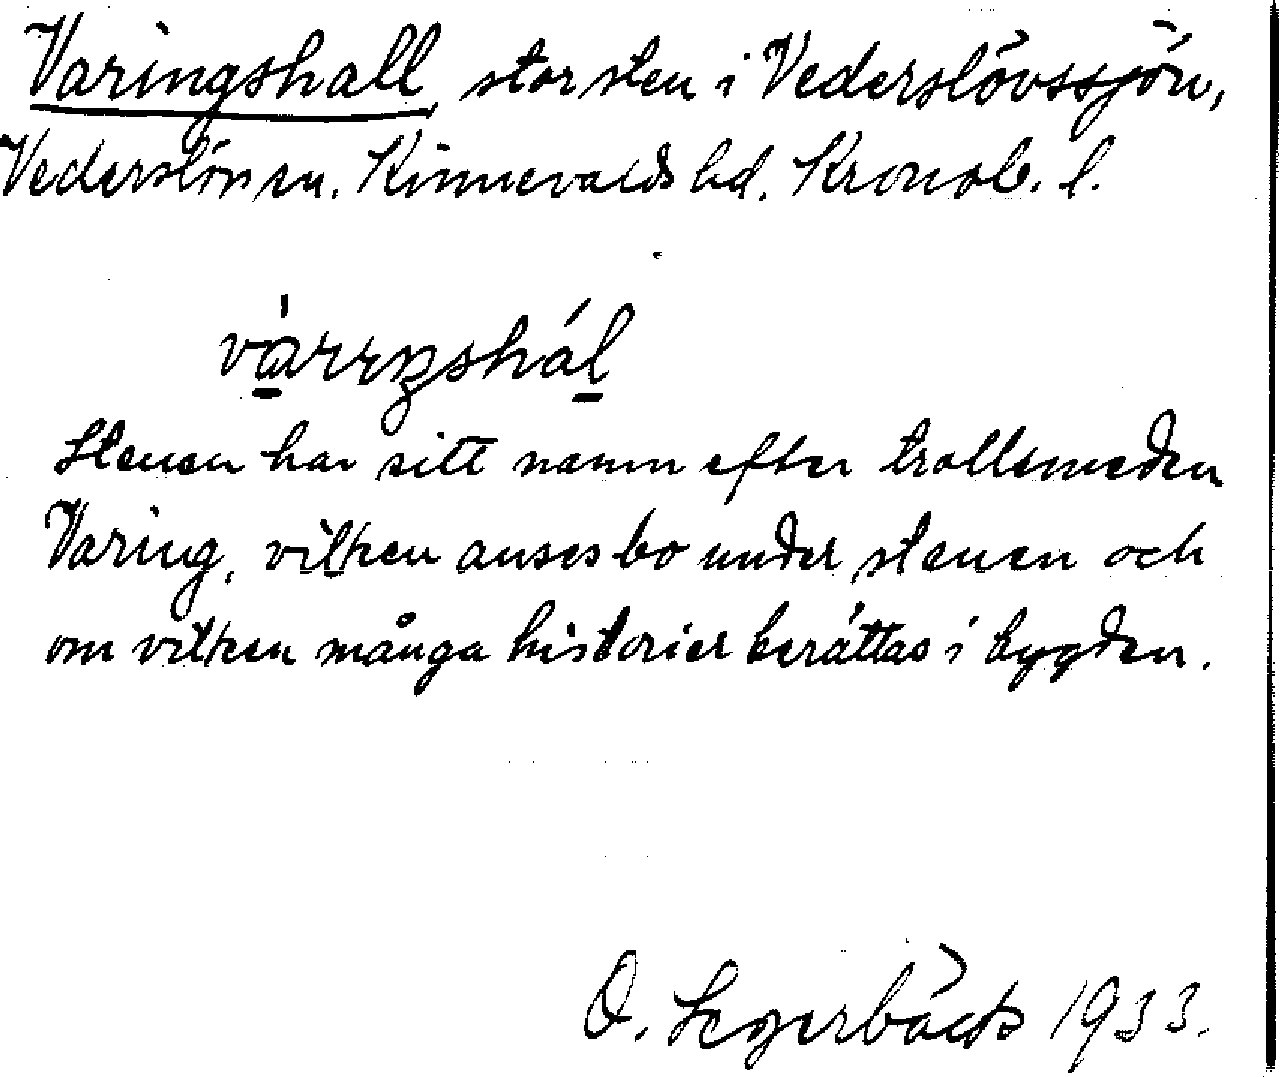 Varingshall, stor sten i Vederslövssjön,
Vederslövs sn. Kinnevalds hd. Kronob. l.
Stenen har sitt namn efter trollsmeden
Varing, vilken anses bo under stenen och
om vilken många historier berättas i bygden.
O. Segerbäck 1933.